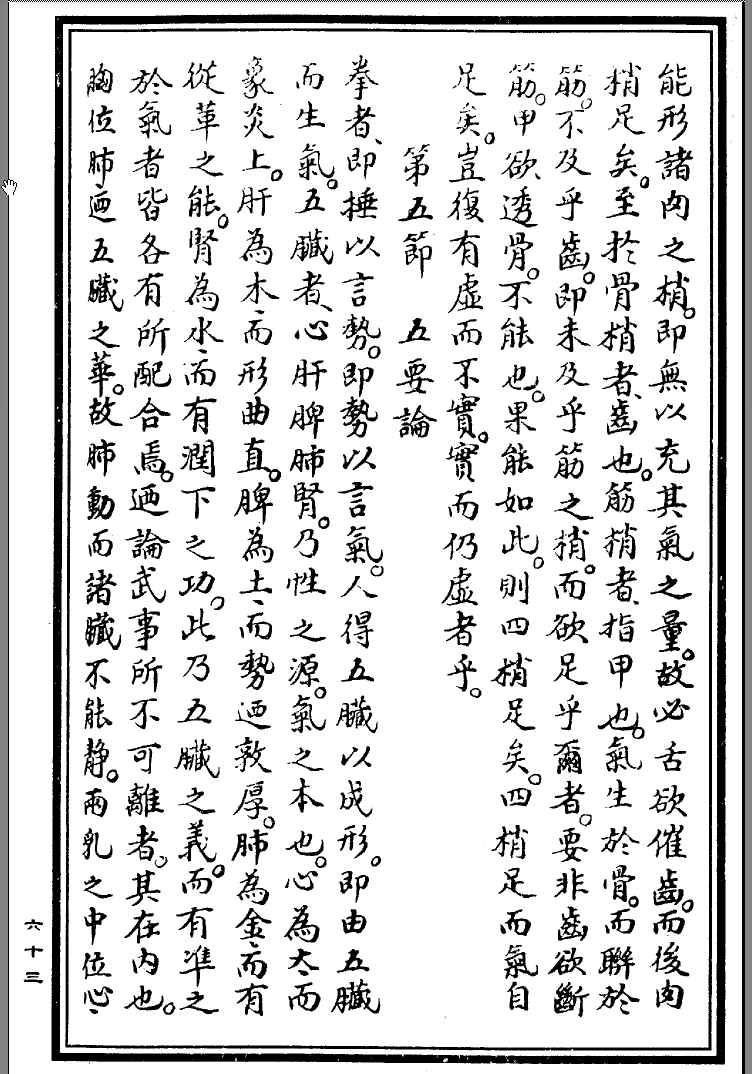 能形諸肉之梢。即無以充其氣之量。故必舌欲催齒。而後肉
梢足矣。至於骨梢者、齒也。筋梢者、指甲也。氣生於骨。而聯於
筋。不及乎齒。即未及乎筋之梢。而欲足乎爾者。要非齒欲斷
筋。甲欲透骨。不能也。果能如此。則四梢足矣。四梢足而氣自
足矣。豈復有虛而不實。實而仍虛者乎。
第五節　五要論
拳者、即捶以言勢。即勢以言氣。人得五臟以成形。即由五臟
而生氣。五臟者、心肝脾肺腎。乃性之源。氣之本也。心為火、而
象炎上。肝為木、而形曲直。脾為土、而勢迺敦厚。肺為金、而有
從革之能。腎為水、而有潤下之功。此乃五臟之義。而有準之
於氣者皆各有所配合焉。迺論武事所不可離者。其在內也。
胸位肺、迺五臟之華。故肺動而諸臟不能靜。兩乳之中位心、
六十三